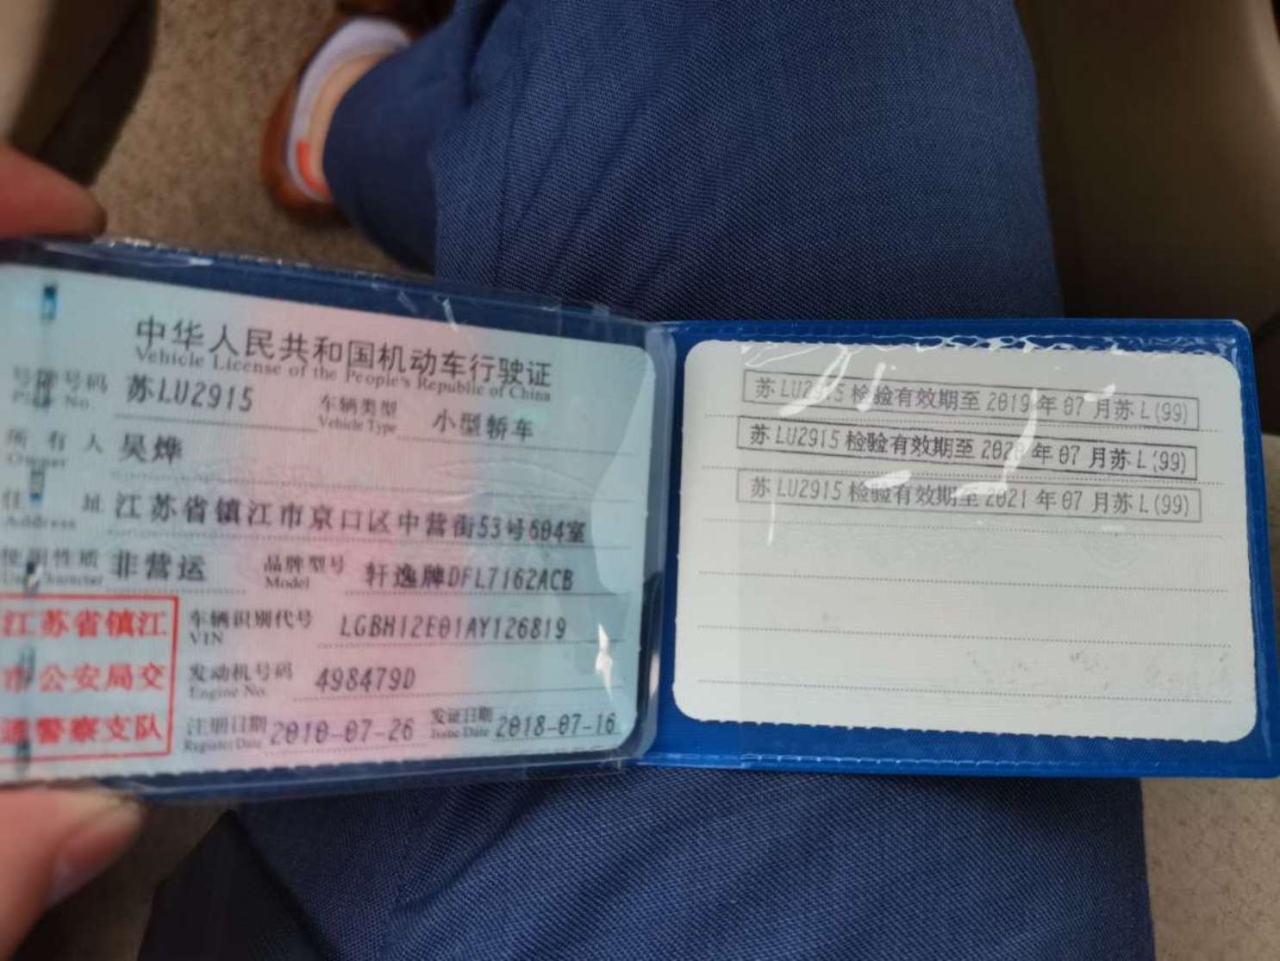 中华人民共和国机动车行驶证
Vehicle License of the People's Republic of China
号牌号码 苏LU2915 车辆类型 小型轿车
Plate No. Vehicle Type
所有人 吴烨
Owner
住址 江苏省镇江市京口区中营街53号604室
Address
使用性质 非营运 品牌型号 轩逸牌DFL7162ACB
Use Character Model
车辆识别代号 LGBH12E01AY126819
VIN
发动机号码 498479D
Engine No.
注册日期 2010-07-26 发证日期 2018-07-16
Register Date Issue Date
江苏省镇江
市公安局交
通警察支队
苏LU2915检验有效期至2019年07月苏L(99)
苏LU2915检验有效期至2020年07月苏L(99)
苏LU2915检验有效期至2021年07月苏L(99)